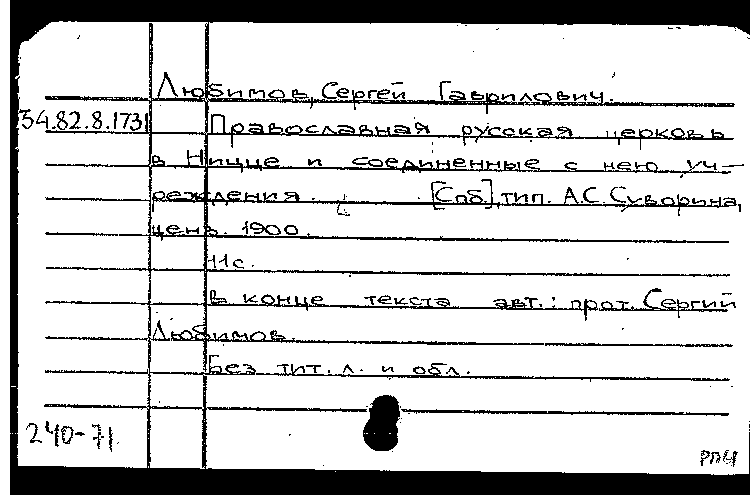 Любимов, Сергей Гаврилович.
34.82.8.1731
Православная русская церковь
в Ницце и соединенные с нею уч-
реждения. [Спб], тип. А.С. Суворина,
ценз. 1900.
11с.
В конце текста авт.: прот. Сергий
Любимов.
Без тит. л. и обл.
240-71